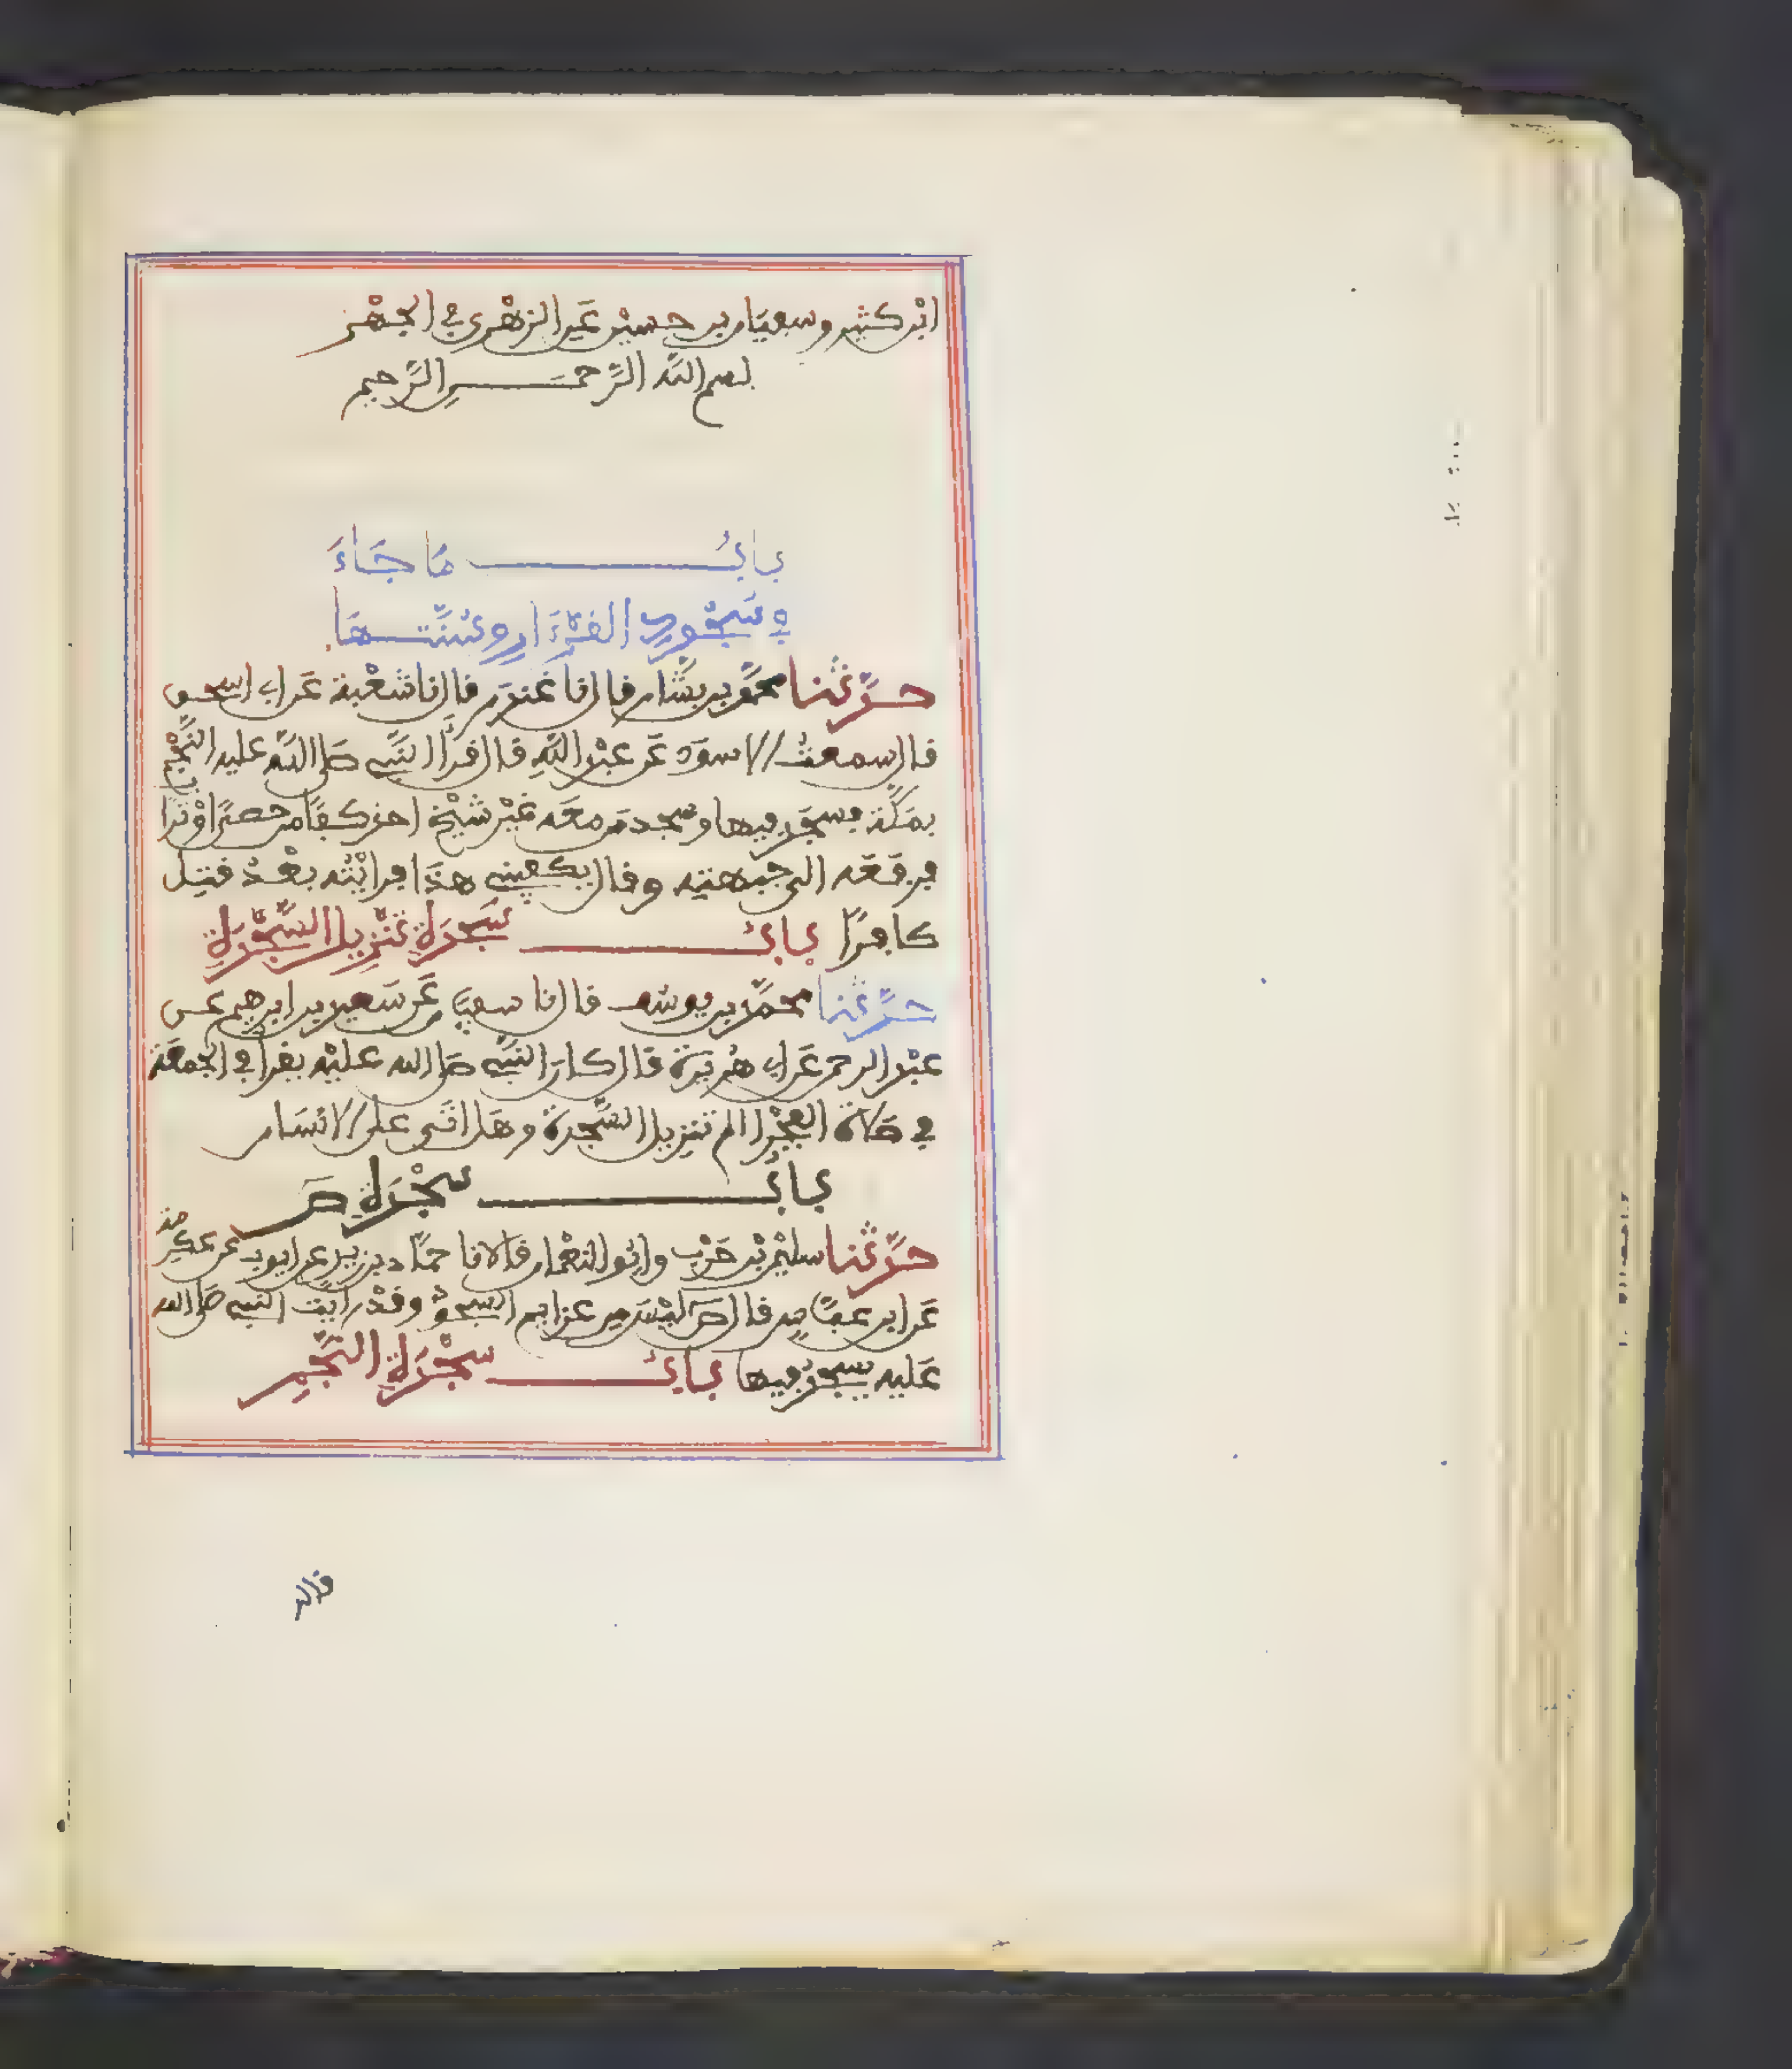 ابْن كثير وسفيان بن حسين عَن الزهْري في الجهْر
بسم اللَّه الرَّحمـــن الرَّحيم
بابُ مَا جَاءَ
في سُجُودِ القُرْءَانِ وسُنَّتهَا
حدَّثنا محمّد بن بشّار قال نا غندَر قال نا شعْبة عَن ابي اسحق
قال سمعتُ الاسود عَن عبْد اللَّهِ قال قرأ النَّبي صَلى اللَّه عليه النَّجْم
بمَكَّة فسجَد فيها وسجد مَن معَه غيْر شيْخ اخذ كفًّا من حصًى اوْ تراب
فرفَعَه الى جبهته وقال يكفيني هذَا فرايْته بعْدُ قتل
كافرًا بابُ سَجْدَةِ تَنْزِيل السَّجْدَةِ
حدَّثنا محمّد بن يوسف قال نا سفين عَن سَعْد بن ابرهيم عن
عبْد الرحمن عَن ابي هُريْرَة قال كانَ النَّبي صَلى الله عليْه يقرأ في الجمعَة
في صَلاة الفجْر الم تنزيل السَّجدة وهَل اتَى على الانسَان
بابُ سَجْدَةِ صَ
حدَّثنا سليمن بْن حَرْب وابُو النعْمان قالا نا حمّاد بن زيد عن ايوب عن عكرمَة
عَن ابن عبّاسٍ قال صَ ليْسَ من عزايم السجودْ وقدْ رايت النبي صَلى الله
عَليه يسجُدُ فيها بابُ سَجْدَةِ النَّجْمِ
قاله